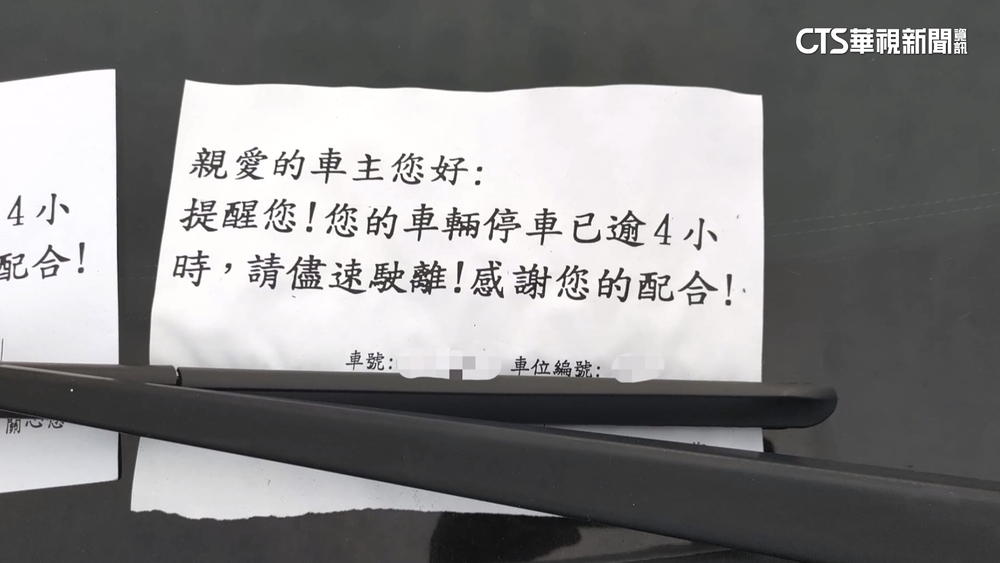 CTS華視新聞資訊
4小
配合!
關心您
親愛的車主您好:
提醒您!您的車輛停車已逾4小
時,請儘速駛離!感謝您的配合!
車號: 車位編號: